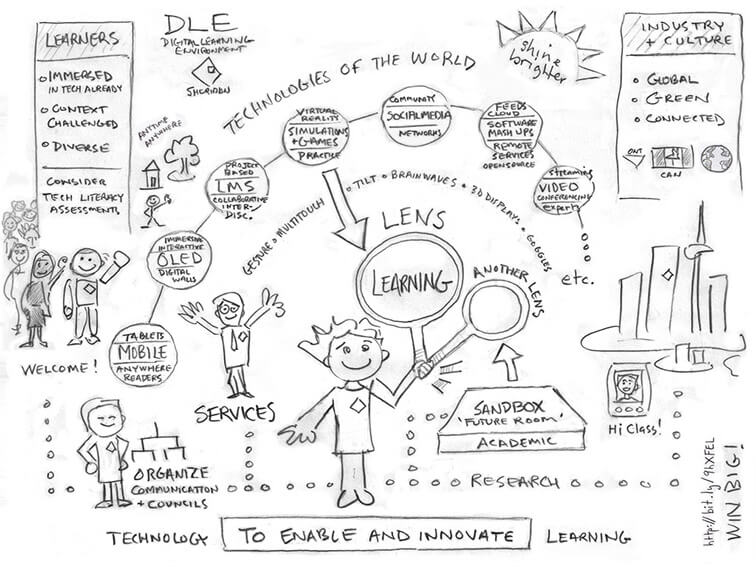 LEARNERS
IMMERSED
IN TECH ALREADY
CONTEXT
CHALLENGED
DIVERSE
CONSIDER
TECH LITERACY
ASSESSMENTS
DLE
DIGITAL LEARNING
ENVIRONMENT
SHERIDAN
shine
brighter
INDUSTRY
+ CULTURE
GLOBAL
GREEN
CONNECTED
ONT
CAN
TECHNOLOGIES OF THE WORLD
ANYTIME
ANYWHERE
TABLETS
MOBILE
ANYWHERE
READERS
IMMERSIVE
INTERACTIVE
OLED
DIGITAL
WALLS
PROJECT
BASED
LMS
COLLABORATIVE
INTER-
DISC.
VIRTUAL
REALITY
SIMULATIONS
+ GAMES
PRACTICE
COMMUNITY
SOCIALMEDIA
NETWORKS
FEEDS
CLOUD
SOFTWARE
MASH UPS
REMOTE
SERVICES
OPEN SOURCE
streaming
VIDEO
CONFERENCING
experts
etc.
GESTURE o MULTITOUCH
o TILT o BRAINWAVES o 3D DISPLAYS o GOGGLES
LENS
LEARNING
ANOTHER LENS
WELCOME!
SERVICES
SANDBOX
'FUTURE ROOM'
ACADEMIC
Hi Class!
ORGANIZE
COMMUNICATION
+ COUNCILS
RESEARCH
TECHNOLOGY TO ENABLE AND INNOVATE LEARNING
http://bit.ly/9hXFEL
WIN BIG!